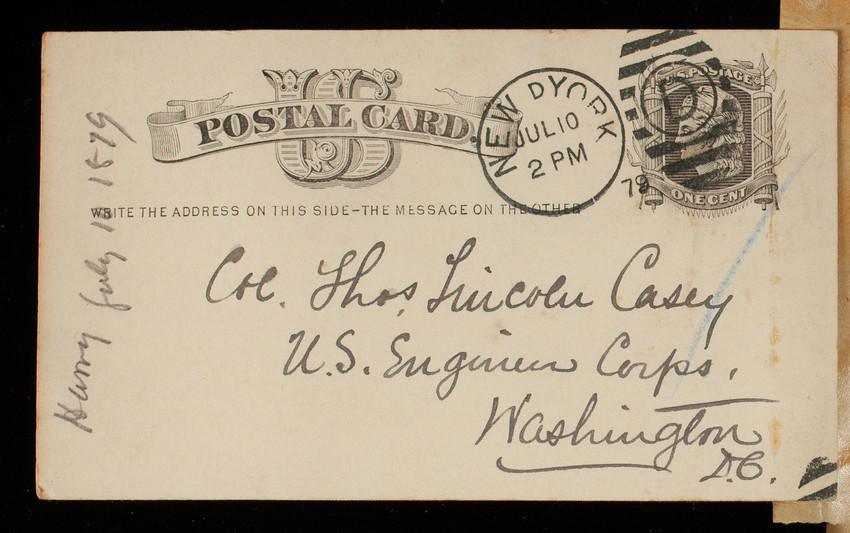 US
POSTAL CARD.
WRITE THE ADDRESS ON THIS SIDE-THE MESSAGE ON THE OTHER
NEW YORK
D
JUL 10
2 PM
79
U.S. POSTAGE
ONE CENT
Col. Thos. Lincoln Casey
U.S. Engineer Corps.
Washington
D.C.
Harry July 10 1879